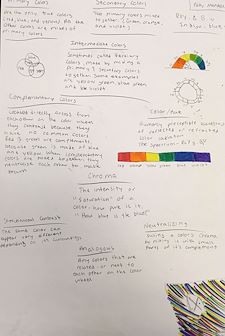 Primary Colors
Secondary Colors
are the very first colors
(red, blue, and yellow). All the
other colors are mixes of
primary colors
The primary colors mixed
together (green, orange,
and violet)
Intermediate Colors
Sometimes called tertiary
colors, made by mixing a
primary & secondary colors
to gether. Some examples
are yellow green, blue green
and blue violet
Complementary Colors
located directly across from
each other on the color wheel
they contrast because they
have no common colors
Red & green are complements
because green is made of blue
and yellow. When complementary
colors are mixed together, they
neutralize each other to make
brown
Color/Hue
Humanly perceptible wavelengths
of reflected or refracted
color radiation
red orange yellow green blue indigo violet
Chroma
The intensity or
"saturation" of a
color. how pure is it,
"How blue is the blue?"
Simultaneous Contrast
The same color can
appear very different
depending on its surroundings
Neutralizing
Dulling a color's chroma
by mixing it with small
parts of it's complement
Analogous
Any colors that are
related or next to
each other on the color
wheel